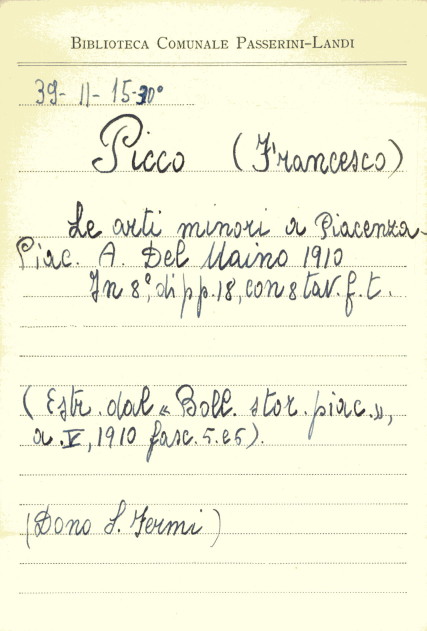 BIBLIOTECA COMUNALE PASSERINI-LANDI
39- II- 15-30°
Picco (Francesco)
Le arti minori a Piacenza-
Piac. A. Del Maino 1910
In 8°, di pp. 18, con 8 tav. f. t.
(Estr. dal « Boll. stor. piac. »,
a. V, 1910 fasc. 5. e 5).
(Dono S. Fermi)